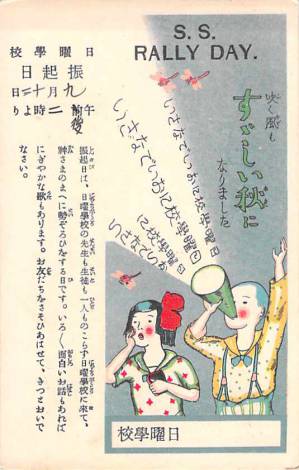 S. S.
RALLY DAY.
日曜學校
振起日
九月十二日
午前後二時より
吹く風も
すゞしい秋に
なりました
日曜學校においでなさい
日曜學校においでなさい
日曜學校においでなさい
振起日は、日曜學校の先生も生徒も一人ものこらず日曜學校に來て、
神さまのまへに勢ぞろひをする日です。いろ〳〵面白いお話もあれば
にぎやかな歌もあります。お友だちをさそひあはせて、きつとおいで
なさい。
日曜學校